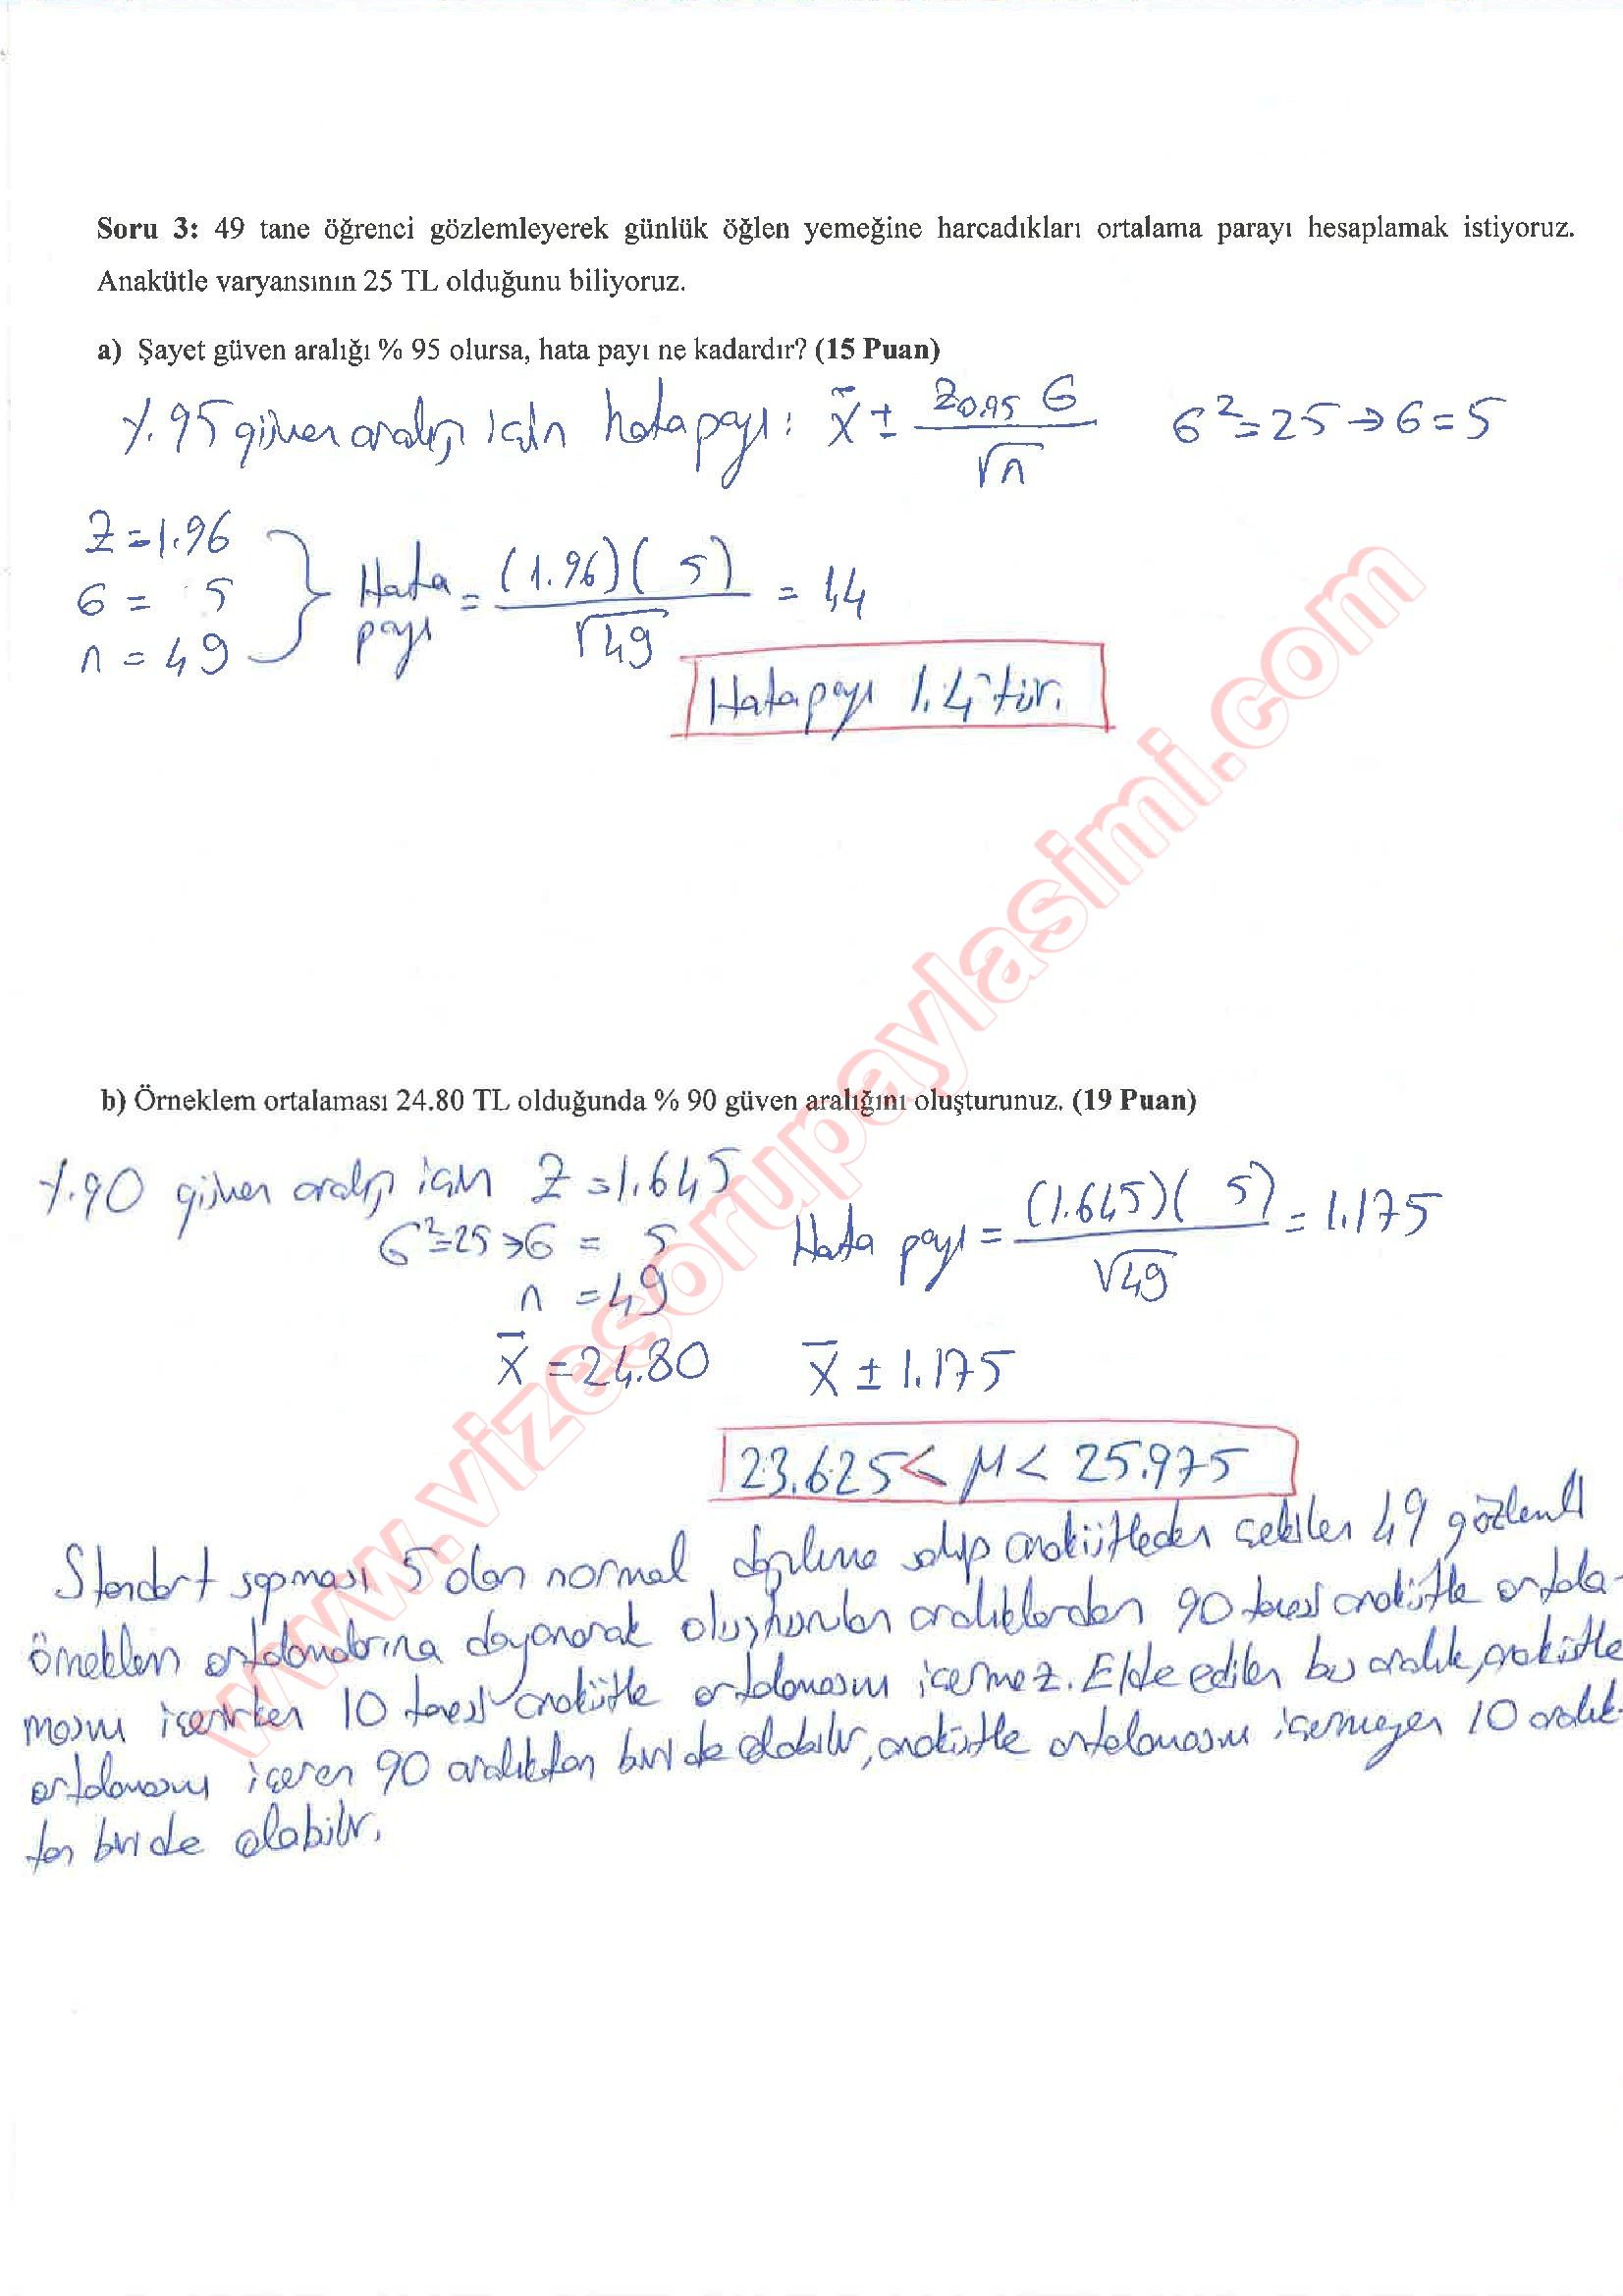 Soru 3: 49 tane öğrenci gözlemleyerek günlük öğlen yemeğine harcadıkları ortalama parayı hesaplamak istiyoruz.
Anakütle varyansının 25 TL olduğunu biliyoruz.
a) Şayet güven aralığı % 95 olursa, hata payı ne kadardır? (15 Puan)
%95 güven aralığı için hata payı: x̄ ± z0.95 σ / √n   σ² = 25 → σ = 5
z = 1.96
σ = 5
n = 49
Hata payı = (1.96)(5) / √49 = 1,4
Hata payı 1.4'tür.
b) Örneklem ortalaması 24.80 TL olduğunda % 90 güven aralığını oluşturunuz. (19 Puan)
%90 güven aralığı için z = 1.645
σ² = 25 → σ = 5
n = 49
x̄ = 24.80
Hata payı = (1.645)(5) / √49 = 1.175
x̄ ± 1.175
23.625 < μ < 25.975
Standart sapması 5 olan normal dağılıma sahip anakütleden çekilen 49 gözlemli
örneklem ortalamalarına dayanarak oluşturulan aralıklardan 90 tanesi anakütle ortala-
masını içerirken 10 tanesi anakütle ortalamasını içermez. Elde edilen bu aralık, anakütle
ortalamasını içeren 90 aralıktan biri de olabilir, anakütle ortalamasını içermeyen 10 aralık-
tan biri de olabilir.
www.vizesorupaylasimi.com